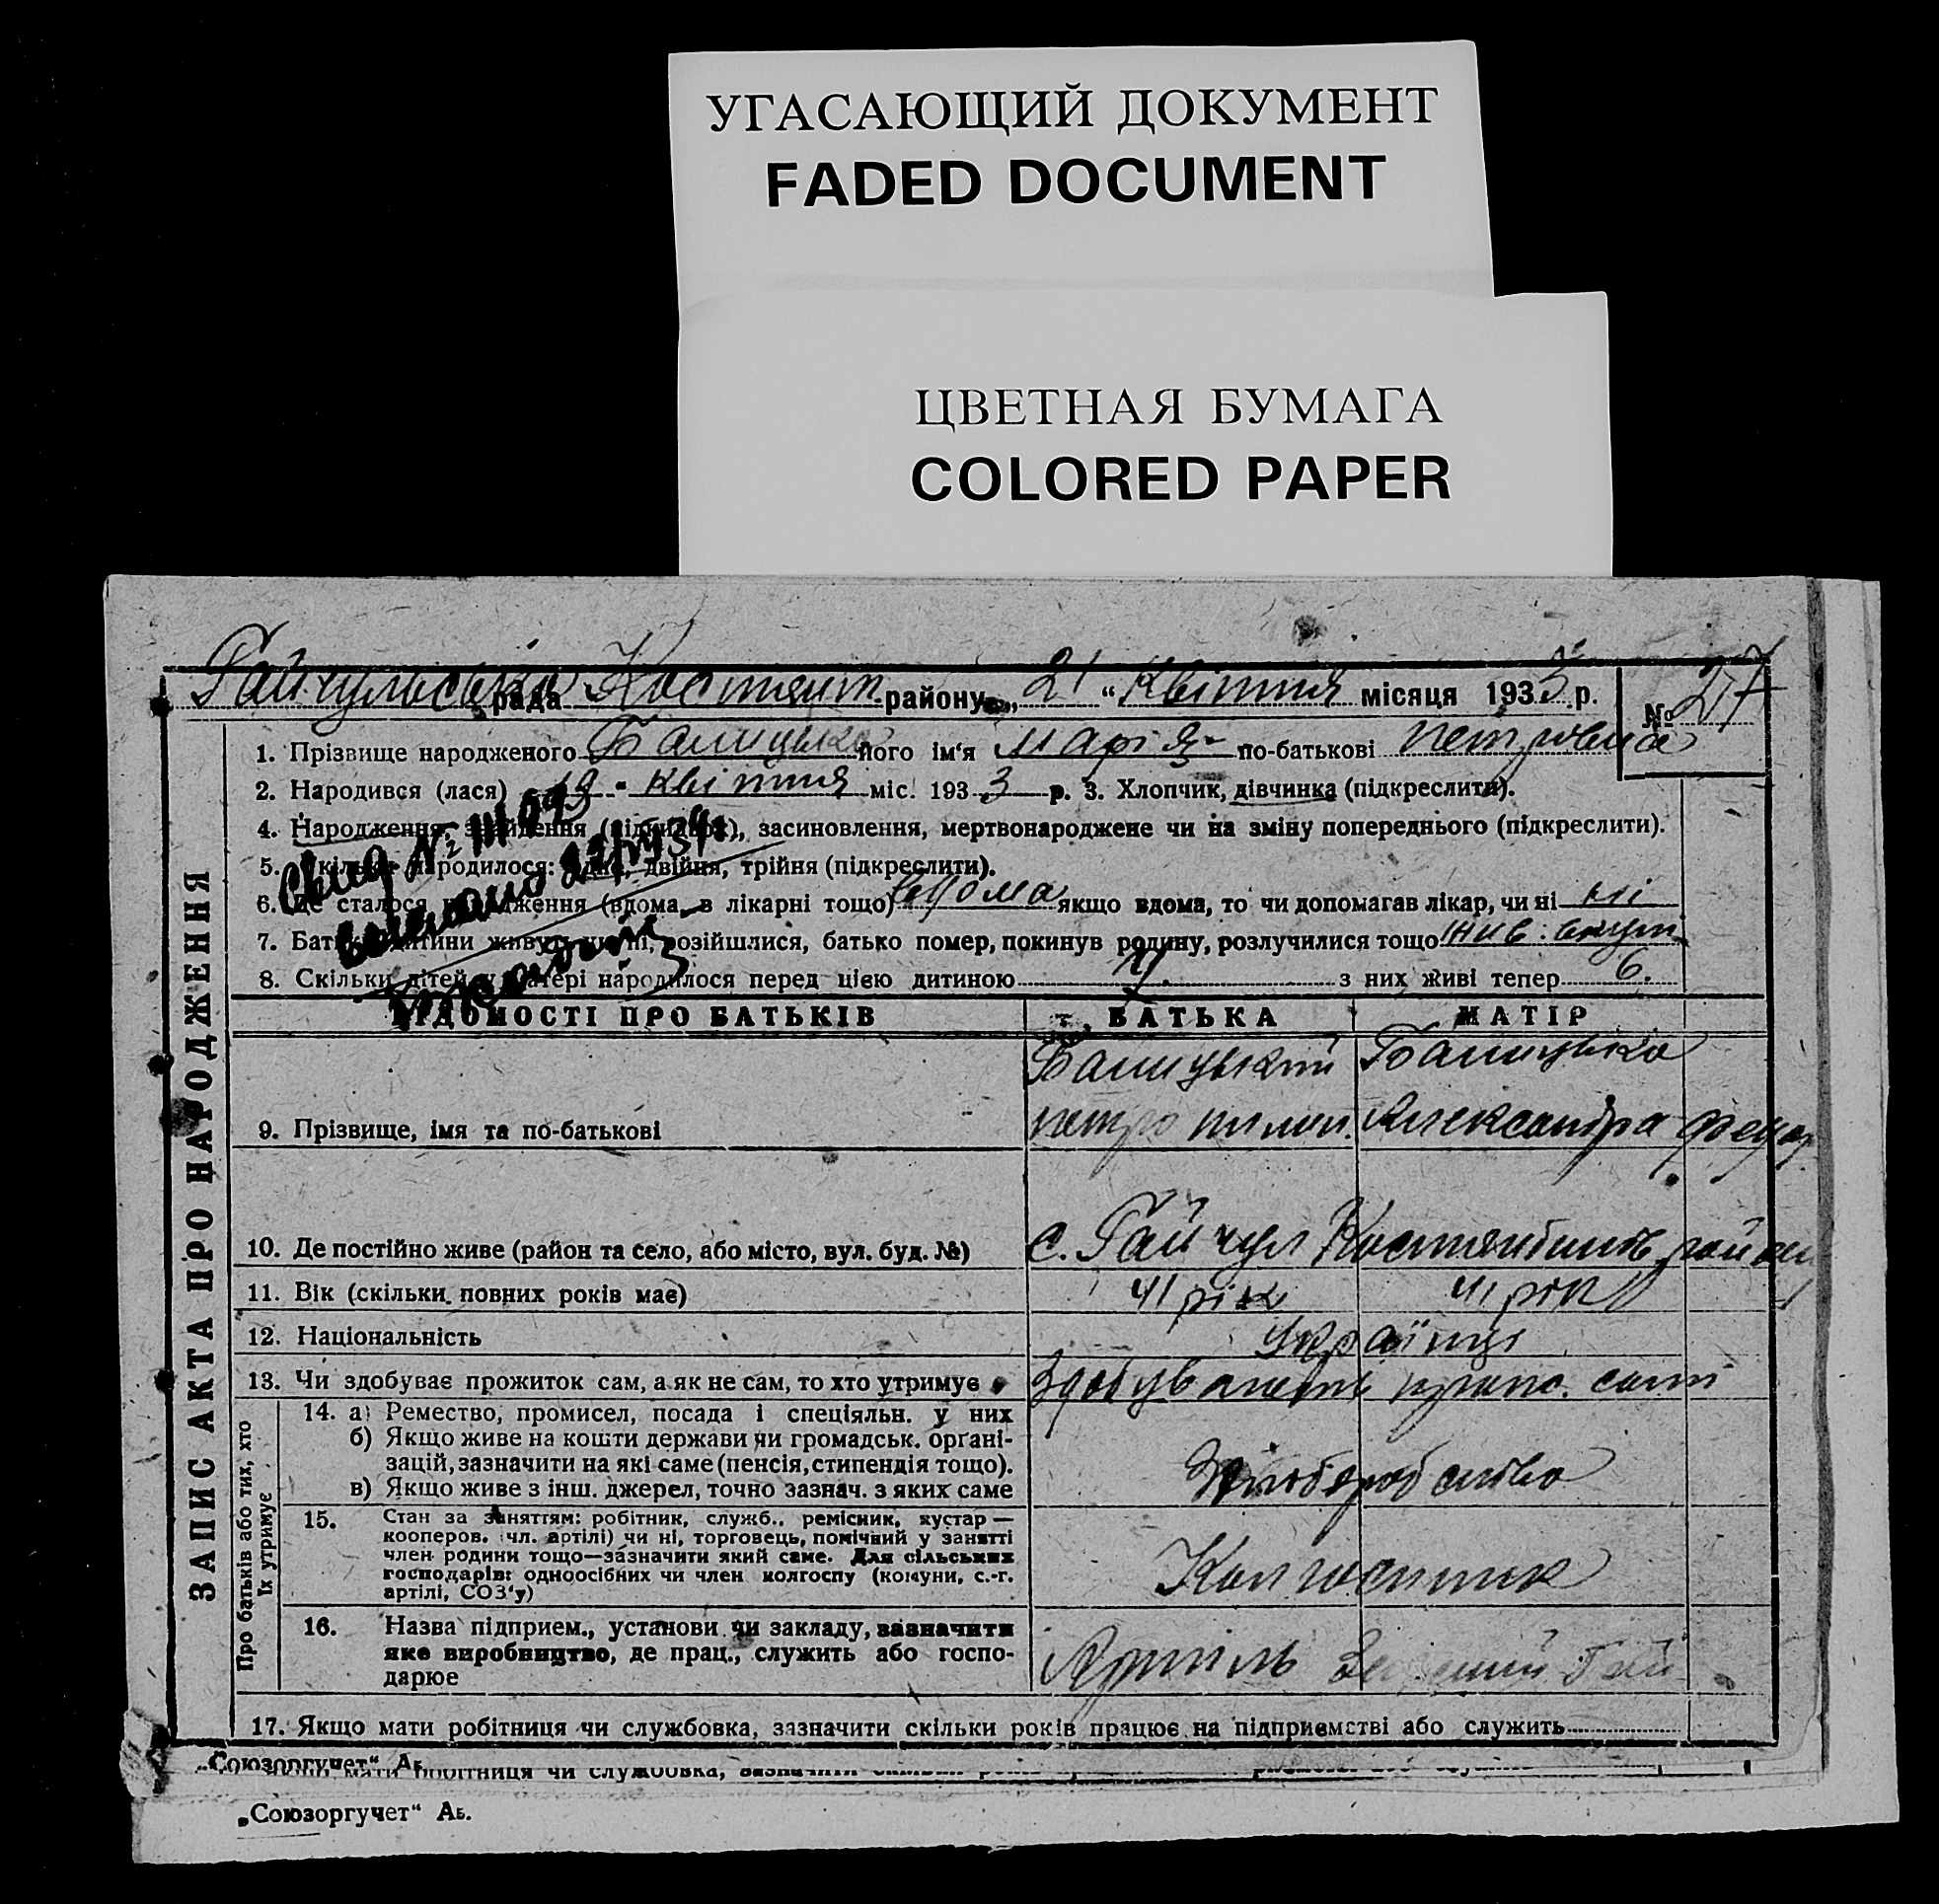 УГАСАЮЩИЙ ДОКУМЕНТ
FADED DOCUMENT
ЦВЕТНАЯ БУМАГА
COLORED PAPER
Гайчульська рада Костянт району „21“ Квітня місяця 1933 р. № 27
1. Прізвище народженого Балицька його ім‘я Марія по-батькові Петровна
2. Народився (лася) 19 " квітня міс. 193 3 р. 3. Хлопчик, дівчинка (підкреслити).
4. Народження, (підкидьок), засиновлення, мертвонароджене чи на зміну попереднього (підкреслити).
5. народилося: двійня, трійня (підкреслити).
6. Де сталося народження (вдома, в лікарні тощо) вдома якщо вдома, то чи допомагав лікар, чи ні ні
7. Батьки дитини живуть чи ні, розійшлися, батько помер, покинув родину, розлучилися тощо
8. Скільки дітей у матері народилося перед цією дитиною з них живі тепер 6.
ВІДОМОСТІ ПРО БАТЬКІВ БАТЬКА МАТІР
Балицький Балицька
9. Прізвище, імя та по-батькові Петро Александра Федор
10. Де постійно живе (район та село, або місто, вул. буд. №) с. Гайчул
11. Вік (скільки повних років має) 41 рік 41 рік
12. Національність Українці
13. Чи здобуває прожиток сам, а як не сам, то хто утримує сами
14. а) Ремество, промисел, посада і спеціяльн. у них
б) Якщо живе на кошти держави чи громадськ. органі-
зацій, зазначити на які саме (пенсія, стипендія тощо).
в) Якщо живе з інш. джерел, точно зазнач. з яких саме
Хліборобство
15. Стан за заняттям: робітник, служб., ремісник, кустар —
кооперов. (чл. артілі) чи ні, торговець, помічний у занятті
член родини тощо—зазначити який саме. Для сільських
господарів: одноосібних чи член колгоспу (комуни, с.-г.
артілі, СОЗ‘у)
Колгоспник
16. Назва підприєм., установи чи закладу, зазначити
яке виробництво, де прац., служить або госпо-
дарює
Артіль Гай
17. Якщо мати робітниця чи службовка, зазначити скільки років працює на підприємстві або служить
ЗАПИС АКТА ПРО НАРОДЖЕННЯ
Про батьків або тих, хто
їх утримує
„Союзоргучет“ Аб.
мати робітниця чи службовка, зазначити
„Союзоргучет“ Аб.